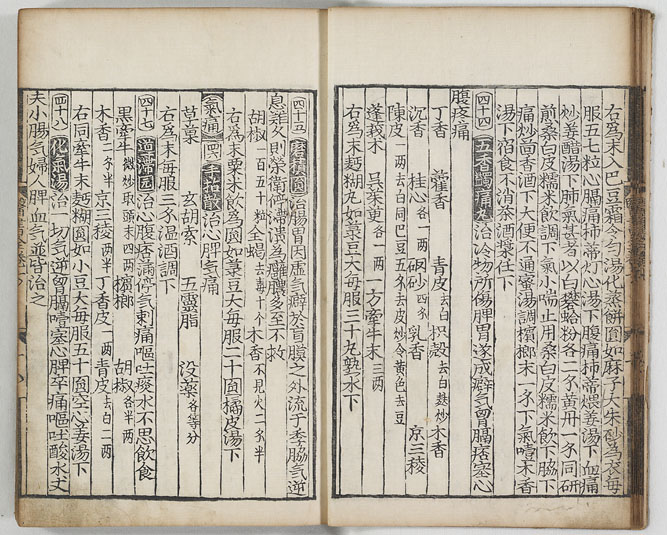 右爲末入巴豆霜令勻湯化蒸餅圓如麻子大朱砂爲衣每
服五七粒心膈痛柿蒂灯心湯下腹痛柿蒂煨姜湯下血痛
炒姜醋湯下肺氣甚者以白礬蛤粉各二分黃丹一分同研
煎桑白皮糯米飮調下氣小喘止用桑白皮糯米飮下脇下
痛炒茴香酒下大便不通蜜湯調檳榔末一分下氣噎木香
湯下宿食不消茶酒漿任下
四十四 五香蠲痛丸 治冷物所傷脾胃遂成癖氣胷膈痞塞心
腹疼痛
丁香 藿香 青皮去白 枳殼去白麸炒 木香
沉香 桂心各一兩 硇砂四分 乳香 京三稜
陳皮一兩去白同巴豆五分去皮炒令黃色去豆
蓬莪朮 吳茱萸各一兩 一方牽牛末三兩
右爲末麪糊丸如菉豆大每服三十九熟水下
四十五 磨積圓 治腸胃因虛气癖於肓膜之外流于季脇气逆
息難久則榮衛停滯潰爲癰膿多至不救
胡椒一百五十粒 全蝎去毒十个 木香不見火二分半
右爲末粟米飮爲圓如菉豆大每服二十圓橘皮湯下
氣痛 四六 手拈散 治心脾气痛
草菓 玄胡索 五靈脂 没藥各等分
右爲末每服三分温酒調下
四十七 逍滯圓 治心腹痞滿停气刺痛嘔吐痰水不思飮食
黑牽牛微炒取頭末四兩 檳榔 胡椒各半兩
木香二分半 京三稜兩半 丁香皮一兩 青皮去白二兩
右同牽牛末麪糊圓如小豆大每服五十圓空心姜湯下
四十八 化氣湯 治一切气逆胷膈噎塞心脾卒痛嘔吐酸水丈
夫小腸气婦人脾血气並皆治之